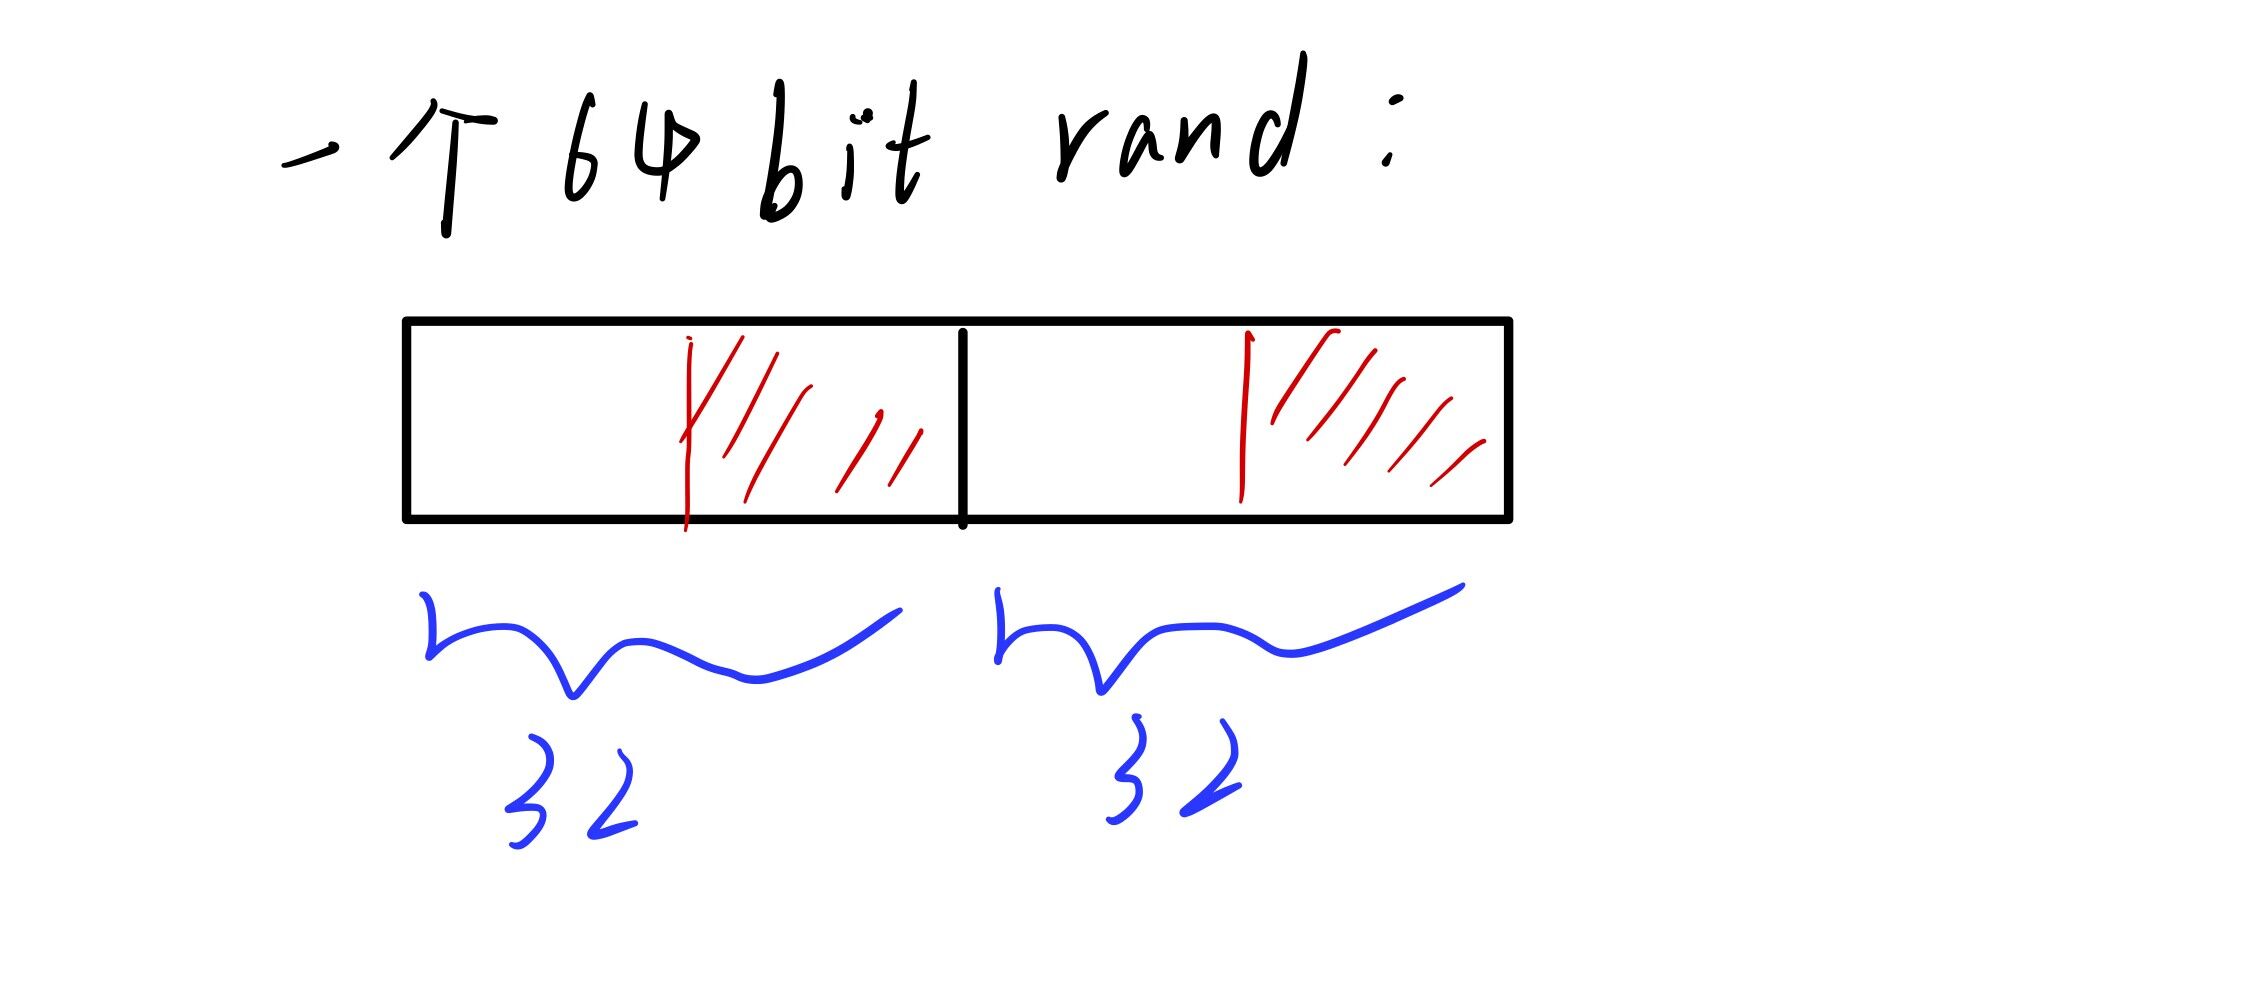 一个 64 bit rand :
32 32